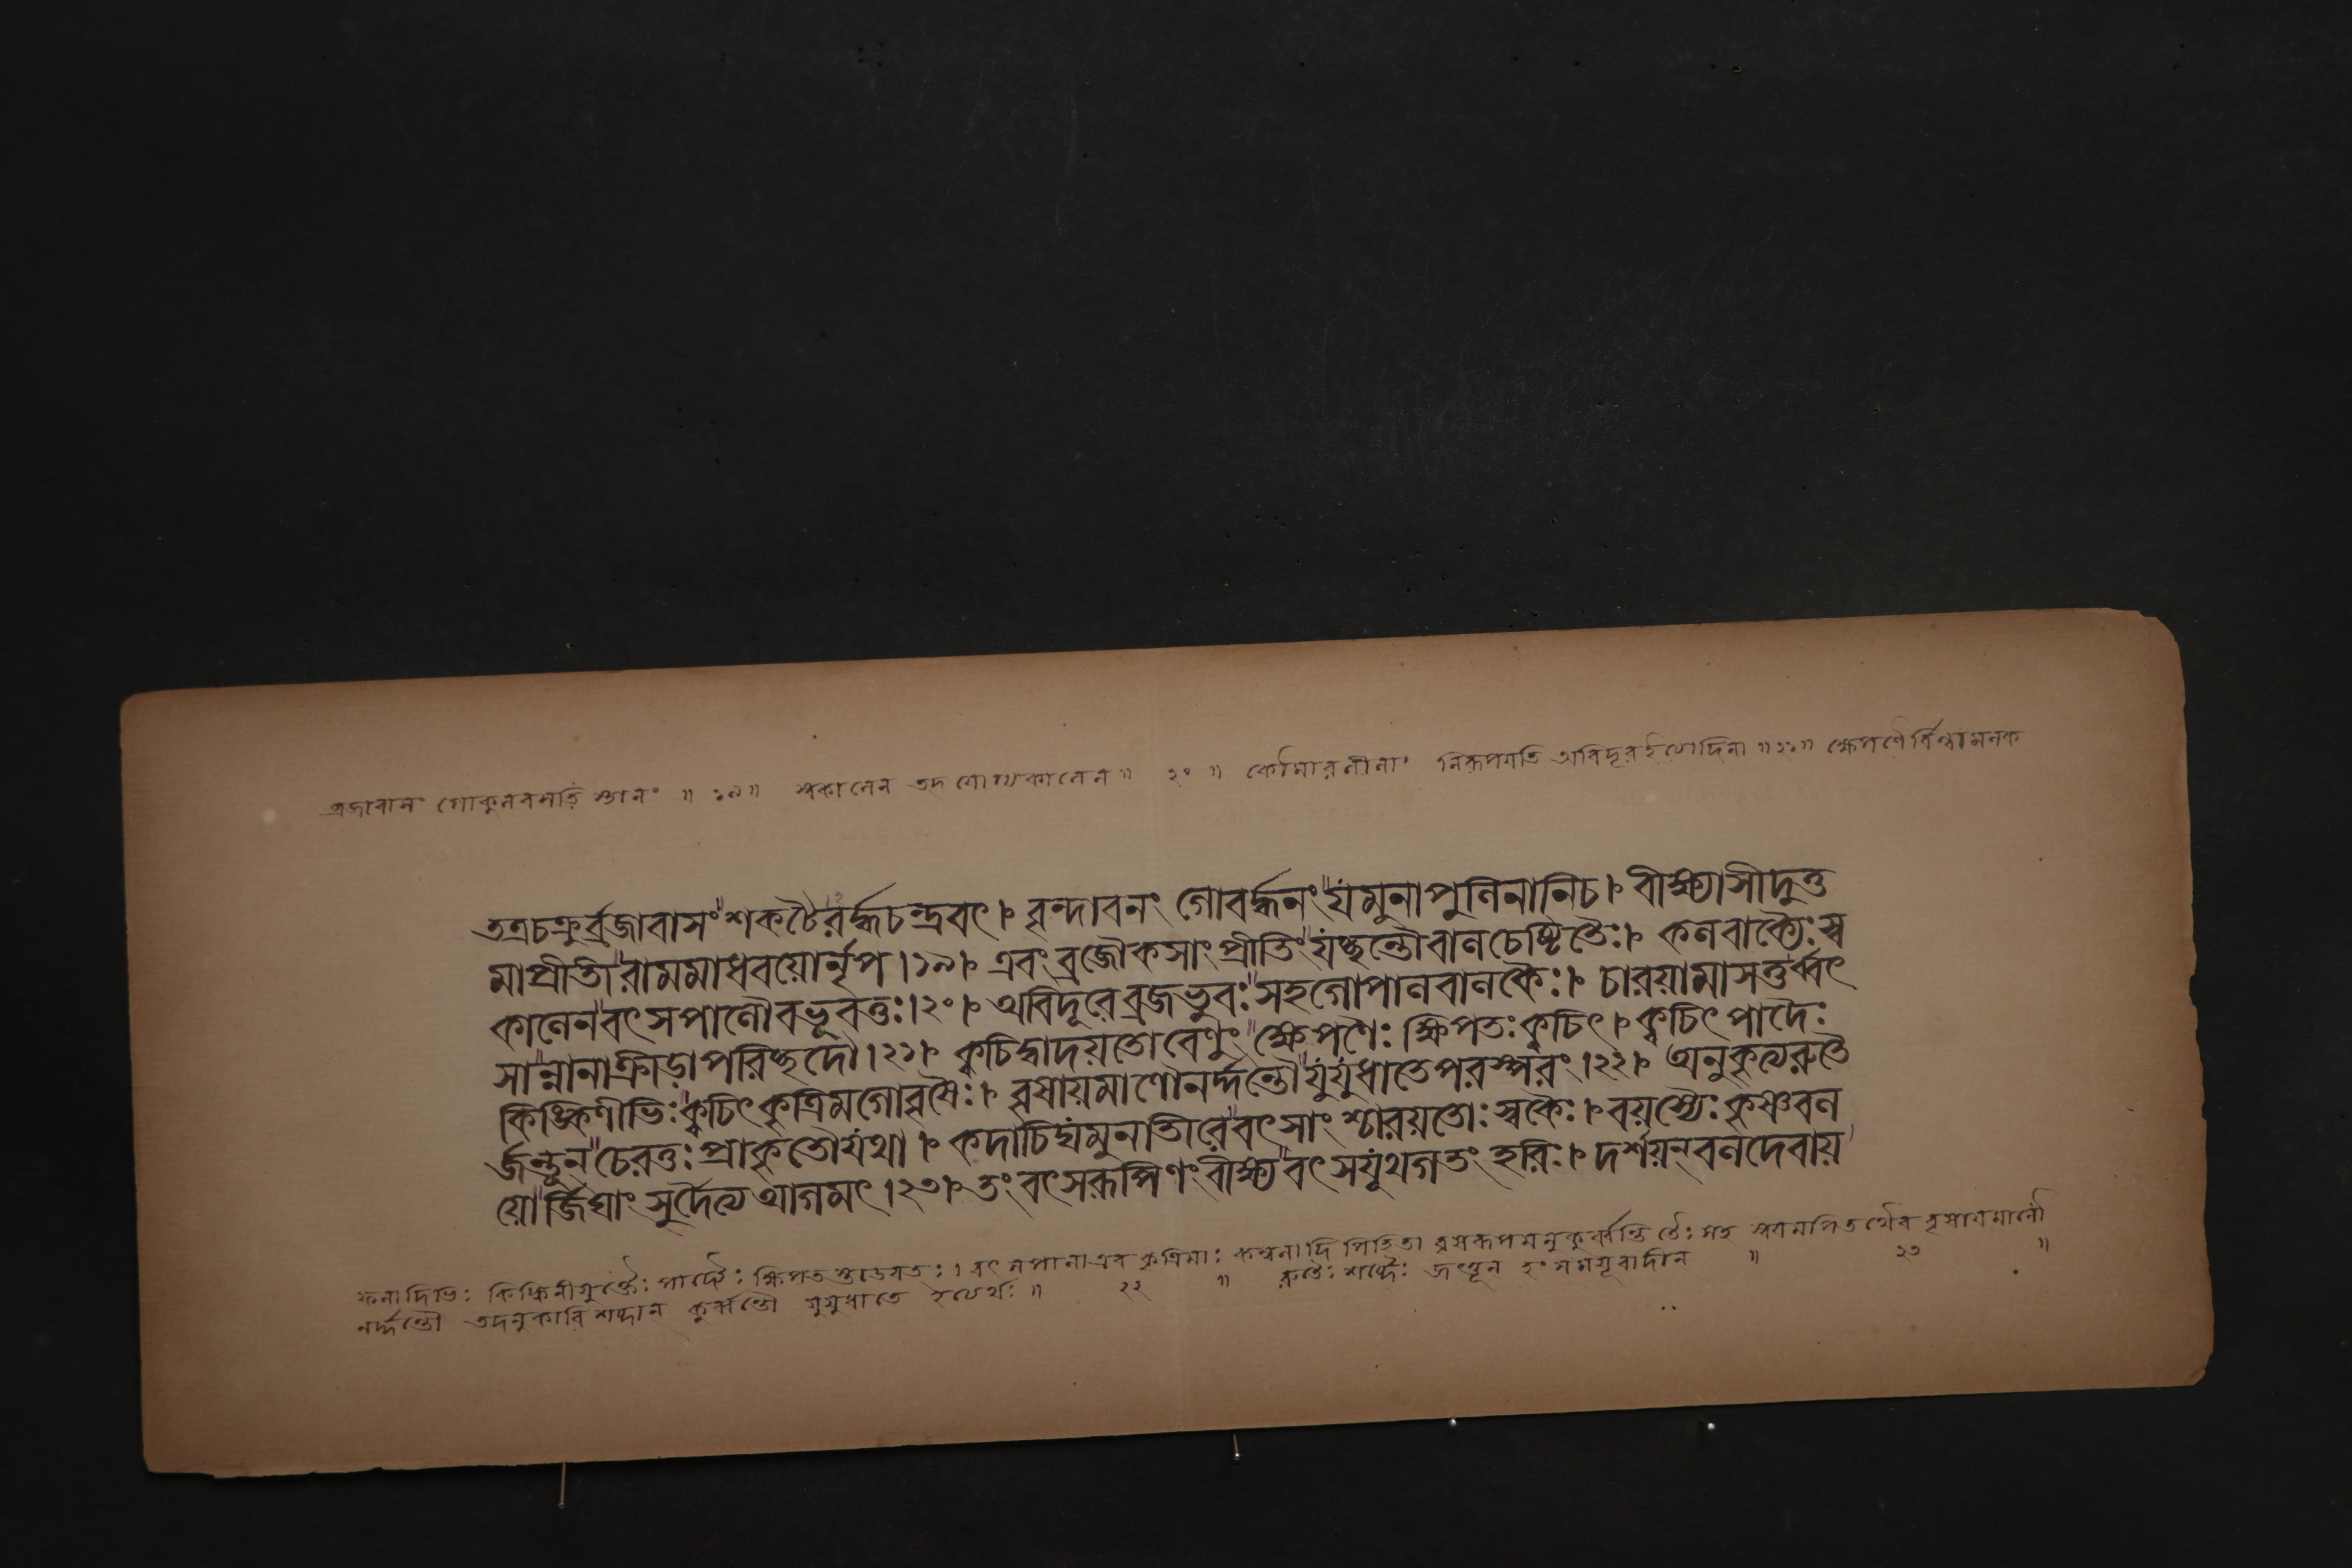 ব্রজাবাসং গোকুলবসতিস্থানং ॥ ১৯ ॥ স্বকালেন তদযোগ্যকালেন ॥ ২০ ॥ কৌমারলীলাং নিরূপয়তি অবিদূরইত্যাদিনা ॥ ২১ ॥ ক্ষেপণৈর্বিল্বামলক
তত্রচক্রুর্ব্রজাবাসং শকটৈরর্দ্ধচন্দ্রবৎ। বৃন্দাবনং গোবর্দ্ধনং যমুনাপুলিনানিচ। বীক্ষ্যাসীদুত্ত
মাপ্রীতী রামমাধবয়োর্নৃপ।১৯। এবং ব্রজৌকসাং প্রীতিং যচ্ছন্তৌবালচেষ্টিতৈঃ। কলবাক্যৈঃ স্ব
কালেন বৎসপালৌবভূবতুঃ।২০। অবিদূরে ব্রজভুবঃ সহগোপালবালকৈঃ। চারয়ামাসতুর্ব্বৎ
সান্নানাক্রীড়াপরিচ্ছদৌ।২১। ক্বচিদ্বাদয়তোবেণুং ক্ষেপণৈঃ ক্ষিপতঃক্বচিৎ। ক্বচিৎ পাদৈঃ
কিঙ্কিণীভিঃ ক্বচিৎ কৃত্রিমগোবৃষৈঃ। বৃষায়মাণৌনর্দ্দন্তৌ যুযুধাতেপরস্পরং।২২। অনুকৃত্যরুতৈ
র্জন্তূন চেরতুঃ প্রাকৃতৌযথা। কদাচিদ্যমুনাতীরে বৎসাং শ্চারয়তোঃ স্বকৈঃ। বয়স্যৈঃ কৃষ্ণবল
য়োর্জিঘাং সুর্দৈত্য আগমৎ।২৩। তং বৎসরূপিণং বীক্ষ্য বৎসযূথগতং হরিঃ। দর্শয়ন্ বলদেবায়
ফলাদিভিঃ কিঙ্কিনীযুক্তৈঃ পাদৈঃ ক্ষিপত স্তাড়য়তঃ। বৎসপালাএব কৃত্রিমাঃ কম্বলাদি পিহিতা বৃষরূপমনুকুর্ব্বন্তি তৈঃ সহ স্বয়মপিতথৈব বৃষায়মাণৌ
নর্দ্দন্তৌ তদনুকারি শব্দান কুর্ব্বন্তৌ যুযুধাতে ইত্যর্থঃ ॥ ২২ ॥ রুতৈঃ শব্দৈঃ জন্তূন হংসময়ূরাদীন ॥ ২৩ ॥